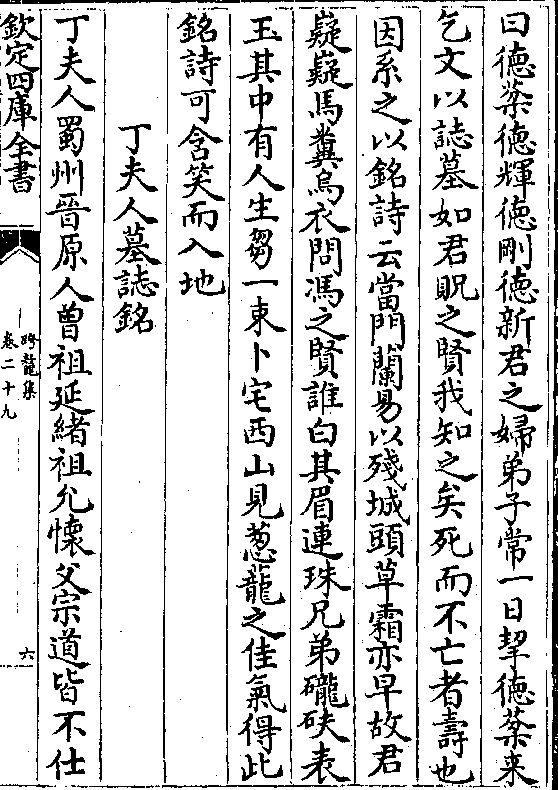 曰德蘂德輝德剛德新君之婦弟子常一日挈德蘂来
乞文以誌墓如君貺之賢我知之矣死而不亡者壽也
因系之以銘詩云當門蘭易以殘城頭草霜亦早故君
嶷嶷馬糞烏衣問馮之賢誰白其眉連珠兄弟瓏砆表
玉其中有人生芻一束卜宅西山見葱蘢之佳氣得此
銘詩可含笑而入地
丁夫人墓誌銘
丁夫人蜀州晉原人曾祖延緒祖允懷父宗道皆不仕
欽定四庫全書
跨鼇集
卷二十九
六